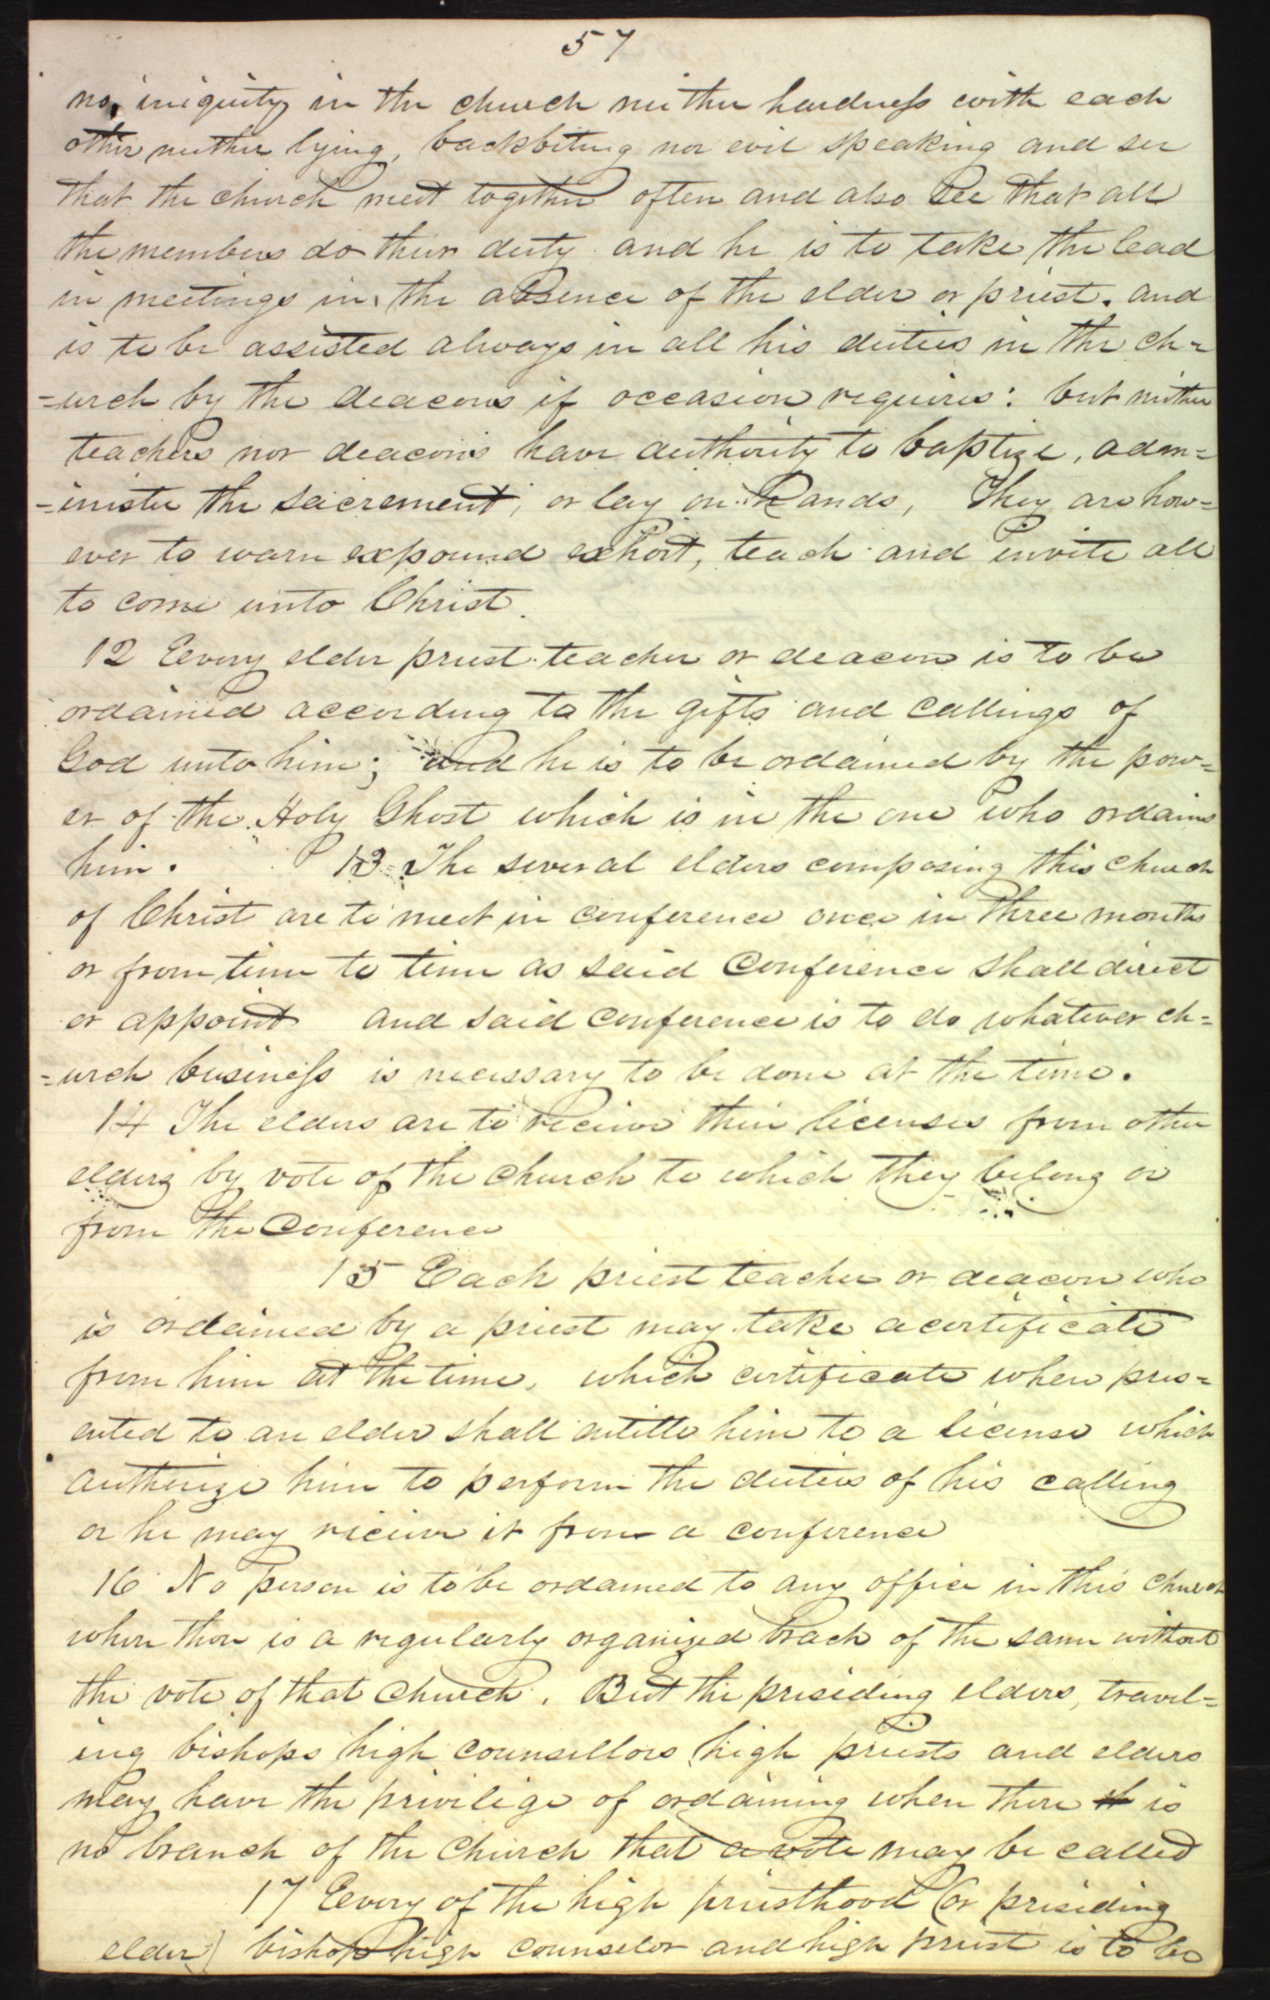 57
no iniquity in the church neither hardness with each
other neither lying, backbiting nor evil speaking and see
that the church meet together often and also see that all
the members do their duty and he is to take the lead
in meetings in the absence of the elder or priest. and
is to be assisted always in all his duties in the ch=
=urch by the deacons if occasion requires: but neither
teachers nor deacons have authority to baptize, adm=
=inister the sacrement, or lay on hands, They are how=
ever to warn expound exhort, teach and invite all
to come unto Christ.
12 Eevery elder priest teacher or deacon is to be
ordained according to the gifts and callings of
God unto him; and he is to be ordained by the pow=
er of the Holy Ghost which is in the one who ordains
him. 13 The several elders composing this church
of Christ are to meet in conference once in three months
or from time to time as said Conference shall direct
or appoint and said conference is to do whatever ch=
=urch business is necessary to be done at the time.
14 The elders are to receive their licenses from other
elders by vote of the church to which they belong or
from the Conference
15 Each priest teacher or deacon who
is ordained by a priest may take a certificate
from him at the time, which certificate when pres=
ented to an elder shall entitle him to a license which
authorize him to perform the duties of his calling
or he may receive it from a conference
16 No person is to be ordained to any office in this church
where there is a regularly organized brach of the same without
the vote of that church. But the presiding elders, travel=
ing bishops high counsellors high priests and elders
may have the privilige of ordaining when there is
no branch of the church that a vote may be called
17 Eevery of the high priesthood (or presiding
elder) bishop high counselor and high priest is to be